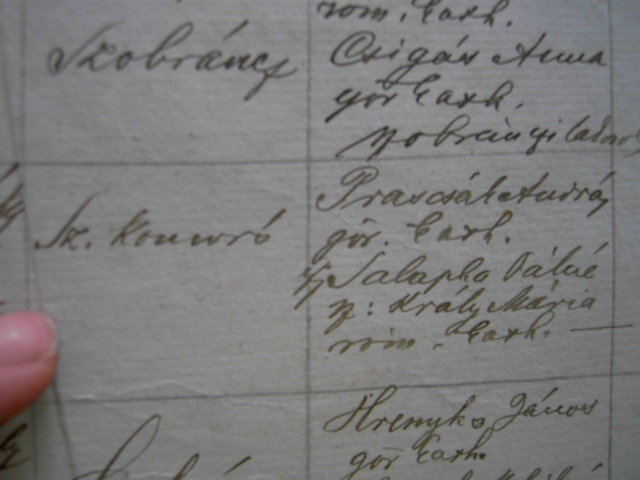 róm. Cath.
Szobráncz
Csigás Anna
gör Cath.
szobránczi
Sz. Komoró
Prascsák András
gör. Cath.
Salapka Pálné
sz: Király Mária
róm. Cath.
Hrenyko János
gör Cath.